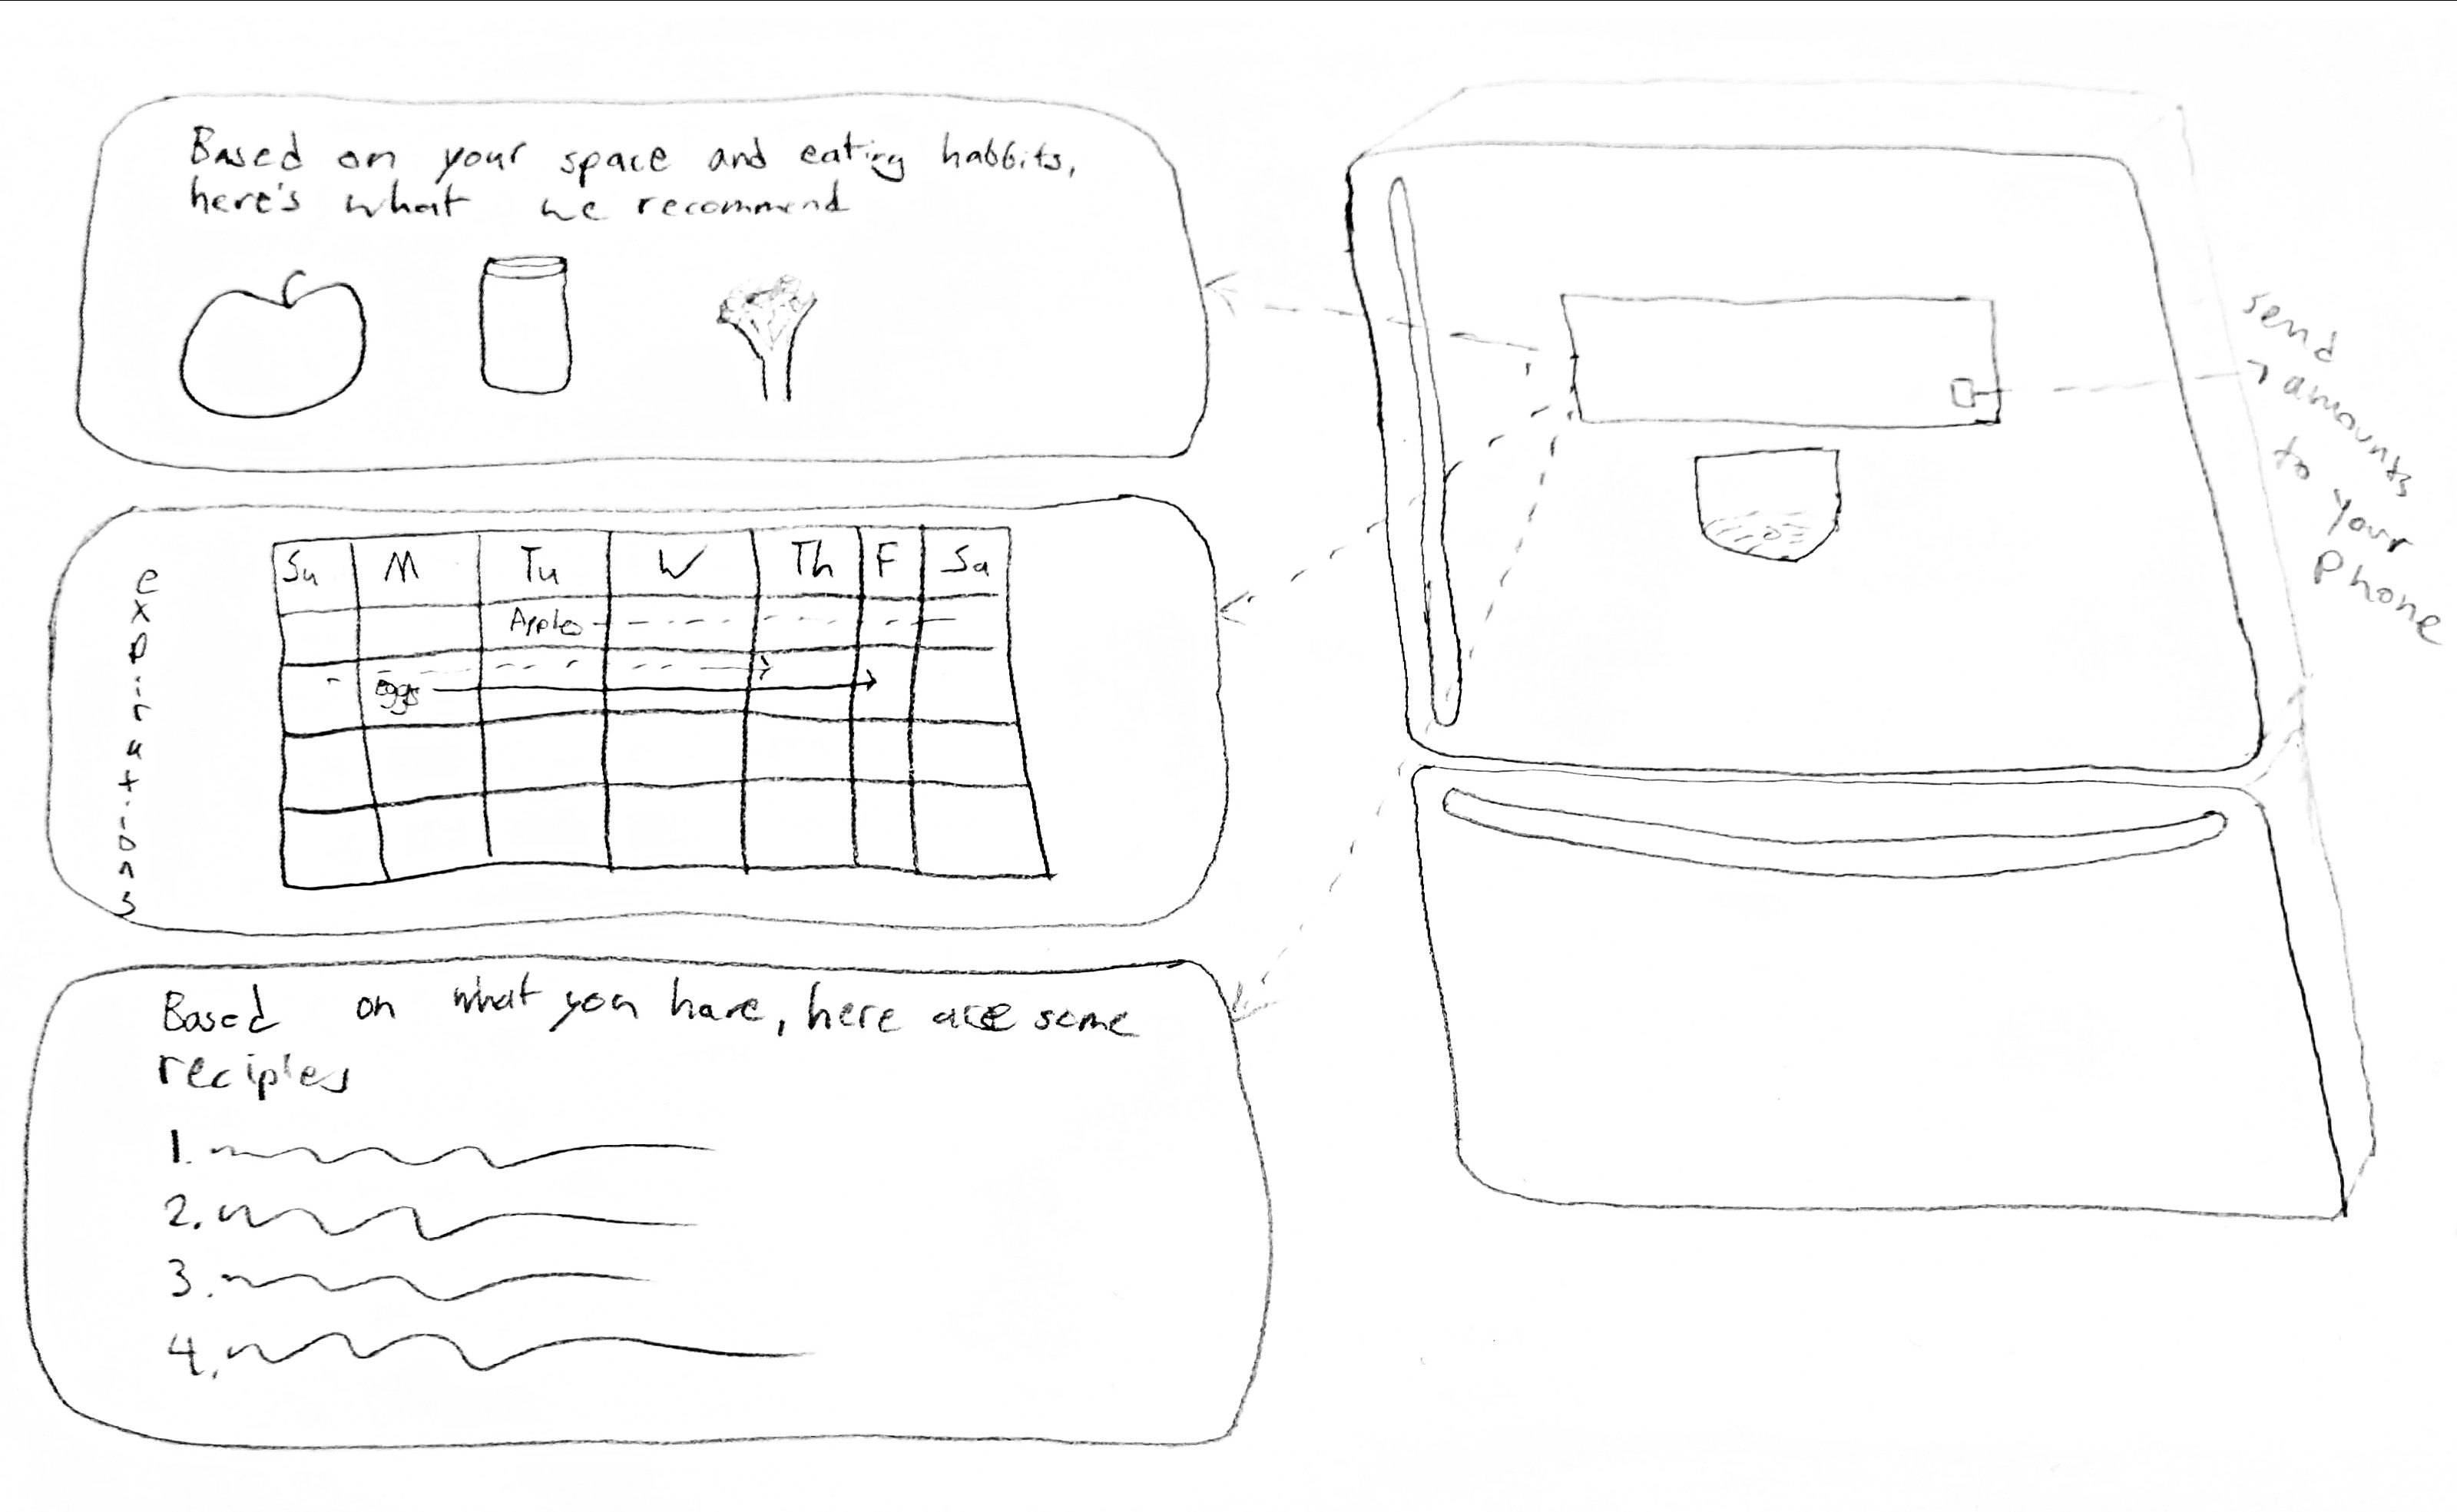 Based on your space and eating habbits,
here's what we recommend
expirations
Su M Tu W Th F Sa
Apples
eggs
Based on what you have, here are some
reciples
1.
2.
3.
4.
send
amounts
to your
Phone